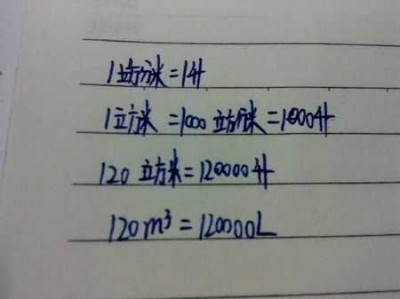 1立方分米=1升
1立方米 =1000立方分米=1000升
120立方米=120000升
120m³=120000L